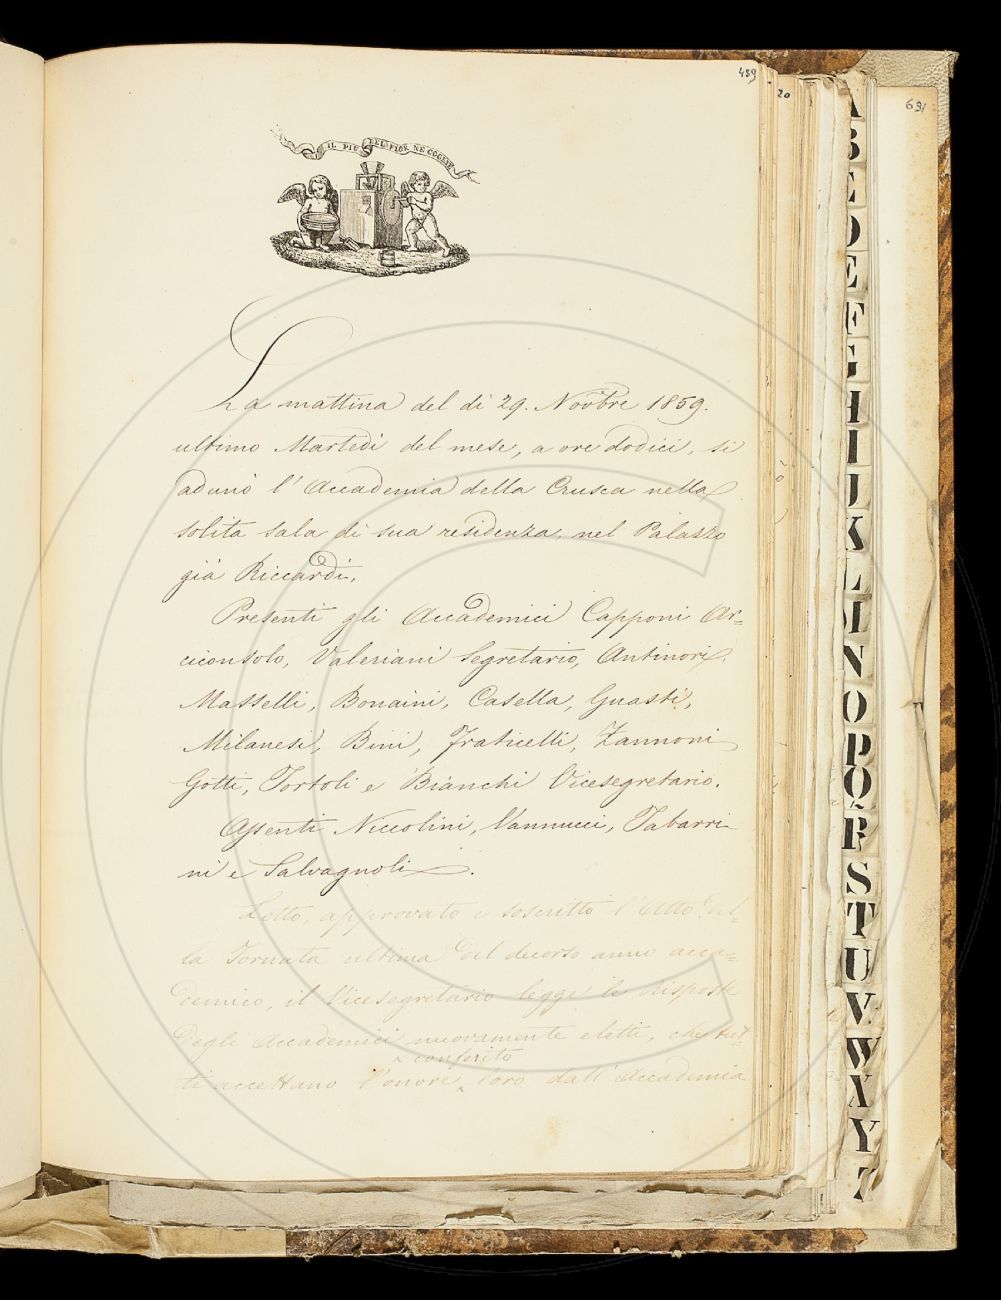 489
20
691
IL PIÙ BEL FIOR NE COGLIE
La mattina del dì 29. Novbre 1859.
ultimo Martedì del mese, a ore dodici, si
adunò l'Accademia della Crusca nella
solita sala di sua residenza, nel Palazzo
già Riccardi.
Presenti gli Accademici Capponi Ar=
ciconsolo, Valeriani Segretario, Antinori,
Masselli, Bonaini, Casella, Guasti,
Milanesi, Bini, Fraticelli, Zannoni
Gotti, Tortoli e Bianchi Vicesegretario.
Assenti Niccolini, Vannucci, Tabarri
ni e Salvagnoli.
Letto, approvato e soscritto l'Atto del=
la Tornata ultima del decorso anno acca=
demico, il Vicesegretario legge le risposte
degli Accademici nuovamente eletti, che tut=
ti accettano l'onore conferito loro dall'Accademia
A
B
C
D
E
F
G
H
I
J
K
L
M
N
O
P
Q
R
S
T
U
V
W
X
Y
Z